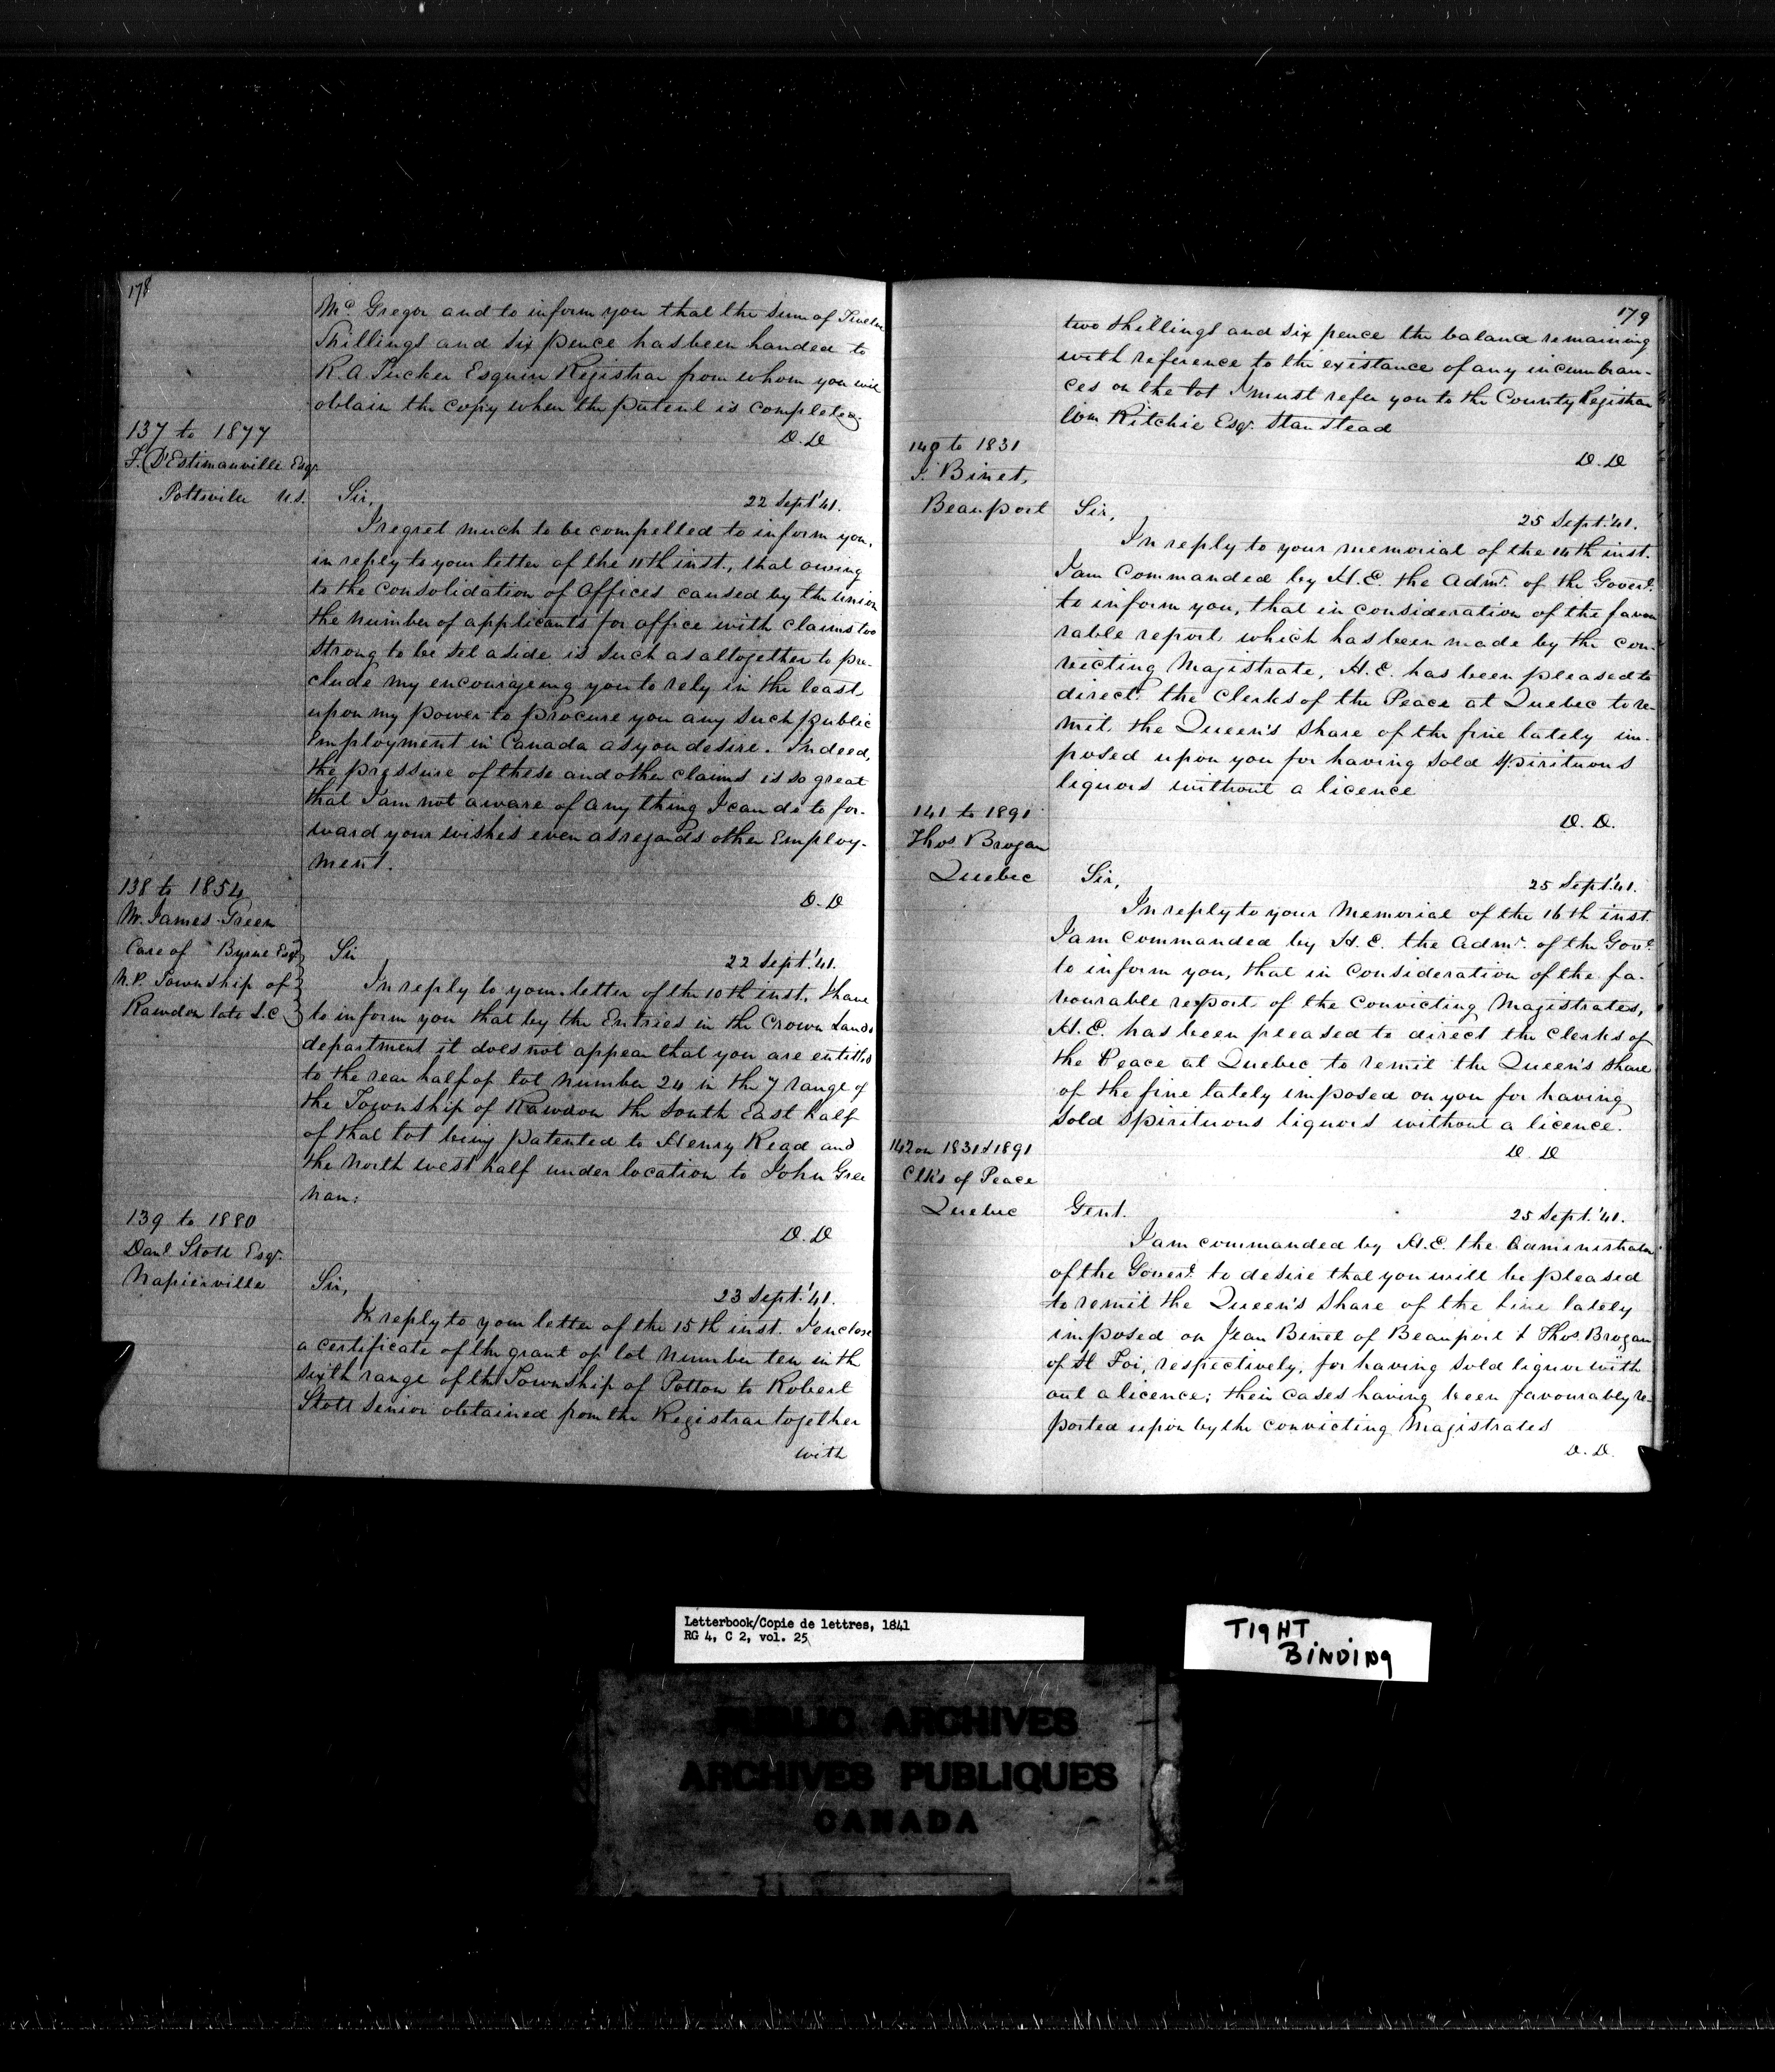 178
Mc. Gregor and to inform you that the sum of Twelve
Shillings and six pence has been handed to
R. A. Tucker Esquire Registrar from whom you will
obtain the copy when the patent is completed.
D. D
137 to 1877
F. D'Estimauville Esqr.
Pottsville U.S.
Sir,
22 Sept. '41.
I regret much to be compelled to inform you,
in reply to your letter of the 11th inst., that owing
to the consolidation of Offices caused by the union
the number of applicants for office with claims too
strong to be set aside is such as altogether to pre-
clude my encourageing you to rely in the least
upon my power to procure you any such public
Employment in Canada as you desire. Indeed,
the pressure of these and other claims is so great
that I am not aware of any thing I can do to for-
ward your wishes even as regards other Employ-
ment.
D. D
138 to 1854
Mr. James Green
Care of " Byrne Esqr
N.P. Township of
Rawdon late L.C.
Sir
22 Sept. '41.
In reply to your letter of the 10th inst. I have
to inform you that by the Entries in the Crown Lands
department it does not appear that you are entitled
to the rear half of lot number 24 in the 7 range of
the Township of Rawdon the South East half
of that lot being patented to Henry Read and
the North west half under location to John Gree
nan:
D. D
139 to 1880
Danl. Stott Esqr.
Napierville
Sir,
23 Sept. '41.
In reply to your letter of the 15th inst. I enclose
a certificate of the grant of lot number ten in th
sixth range of the Township of Potton to Robert
Stott Senior obtained from the Registrar together
with
179
two shillings and six pence the balance remaining
with reference to the existance of any incumbran-
ces on the lot I must refer you to the County Registrar
Wm Ritchie Esqr. Stanstead
D. D
140 to 1831
J. Binet,
Beauport
Sir,
25 Sept. '41.
In reply to your memorial of the 14th inst.
I am Commanded by H.E. the Admr. of the Govert.
to inform you, that in consideration of the favou
rable report which has been made by the con-
victing Magistrate, H.E. has been pleased to
direct the Clerks of the Peace at Quebec to re-
mit the Queen's share of the fine lately im-
posed upon you for having sold spirituous
liquors without a licence
D. D.
141 to 1891
Thos. Brogan
Quebec
Sir,
25 Sept. '41.
In reply to your Memorial of the 16th inst.
I am commanded by H.E. the Admr. of the Govt.
to inform you, that in consideration of the fa-
vourable report of the Convicting Magistrates,
H.E. has been pleased to direct the Clerks of
the Peace at Quebec to remit the Queen's share
of the fine lately imposed on you for having
sold spirituous liquors without a licence.
D. D
142 on 1831 & 1891
Clk's of Peace
Quebec
Gent.
25 Sept. '41.
I am commanded by H.E. the Administrator
of the Govert. to desire that you will be pleased
to remit the Queen's share of the fine lately
imposed on Jean Binet of Beauport & Thos. Brogan
of St Foi, respectively, for having sold liquor with
out a licence; their cases having been favourably re-
ported upon by the convicting Magistrates
D. D.
Letterbook/Copie de lettres, 1841
RG 4, C 2, vol. 25
TIGHT
BINDING
PUBLIC ARCHIVES
ARCHIVES PUBLIQUES
CANADA